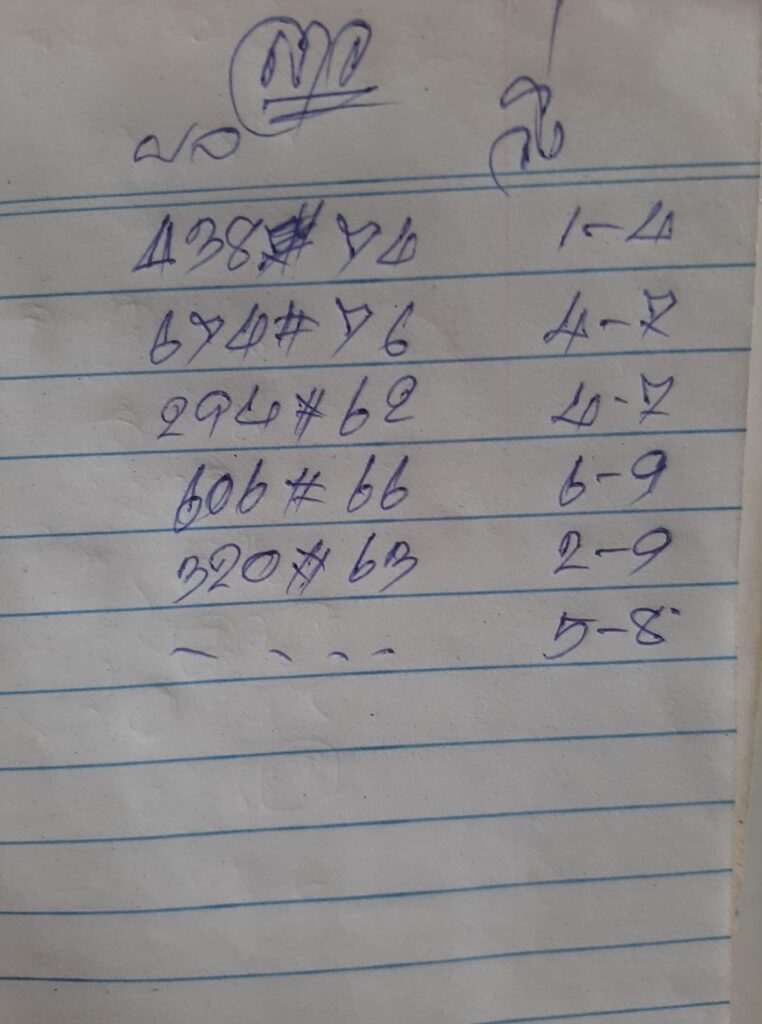 ลาว
ผล วิ่ง
438#74 1-4
674#76 4-7
294#62 4-7
606#66 6-9
320#63 2-9
- - - - 5-8